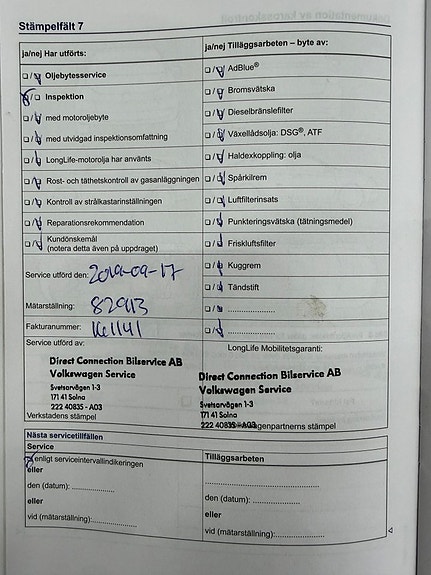 Stämpelfält 7
ja/nej Har utförts:
☐/☑ Oljebytesservice
☑/☐ Inspektion
☐/☑ med motoroljebyte
☐/☑ med utvidgad inspektionsomfattning
☐/☑ LongLife-motorolja har använts
☐/☑ Rost- och täthetskontroll av gasanläggningen
☐/☑ Kontroll av strålkastarinställningen
☐/☑ Reparationsrekommendation
☐/☑ Kundönskemål
(notera detta även på uppdraget)
Service utförd den: 2019-09-17
Mätarställning: 82913
Fakturanummer:
Service utförd av:
Direct Connection Bilservice AB
Volkswagen Service
Svetsarvägen 1-3
171 41 Solna
222 40835 - A03
Verkstadens stämpel
ja/nej Tilläggsarbeten – byte av:
☐/☑ AdBlue®
☐/☑ Bromsvätska
☐/☑ Dieselbränslefilter
☐/☑ Växellådsolja: DSG®, ATF
☐/☑ Haldexkoppling: olja
☐/☑ Spårkilrem
☐/☑ Luftfilterinsats
☐/☑ Punkteringsvätska (tätningsmedel)
☐/☑ Friskluftsfilter
☐/☑ Kuggrem
☐/☑ Tändstift
☐/☑ ........................
☐/☑ ........................
LongLife Mobilitetsgaranti:
Direct Connection Bilservice AB
Volkswagen Service
Svetsarvägen 1-3
171 41 Solna
222 40835 - A03
Volkswagenpartnerns stämpel
Nästa servicetillfällen
Service
☑ enligt serviceintervallindikeringen
eller
den (datum): ......................
eller
vid (mätarställning):................
Tilläggsarbeten
..........................................
den (datum): ......................
eller
vid (mätarställning):................